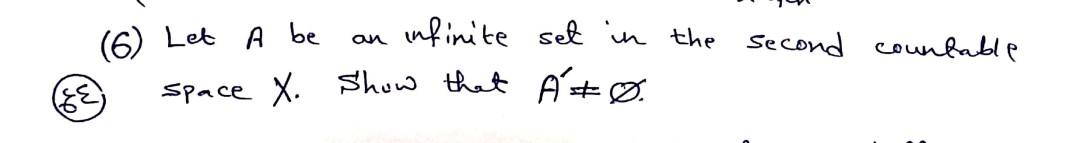 (6) Let A be an infinite set in the second countable
space X. Show that A' ≠ Ø.